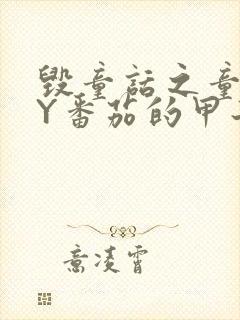 毁童话之童
Y番茄的甲
意凌霄